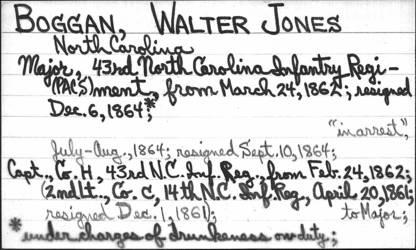 BOGGAN, WALTER JONES
North Carolina
Major, 43rd North Carolina Infantry Regi-
(PACS)ment, from March 24, 1862; resigned
Dec. 6, 1864;*
"in arrest,"
July-Aug., 1864; resigned Sept. 10, 1864;
Capt., Co. H, 43rd N.C. Inf. Reg., from Feb. 24, 1862;
(2nd Lt., Co. C, 14th N.C. Inf. Reg., April 20, 1861;
resigned Dec. 1, 1861); to Major;
*under charges of drunkeness on duty;